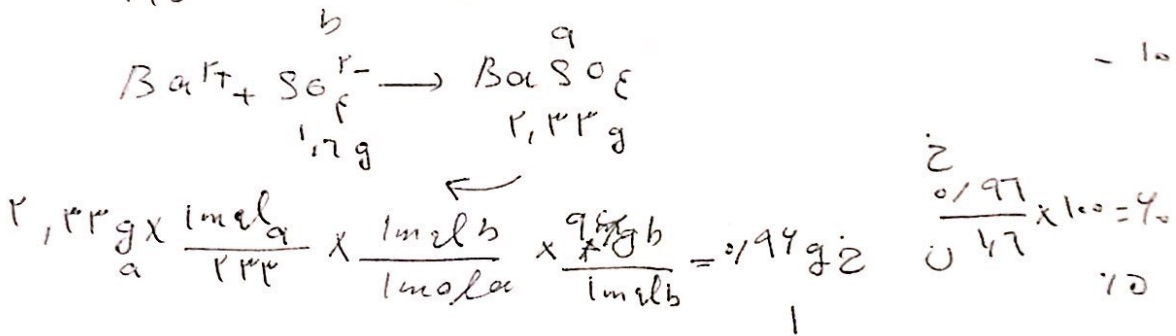 b a
Ba²⁺ + SO₄²⁻ → BaSO₄ - ۱۰
۱,۶ g ۲,۳۳ g
۲,۳۳ g a × 1mol a / ۲۳۳ × 1mol b / 1mol a × ۹۶ g b / 1mol b = ۰/۹۶ g خ خ ۰/۹۶ / ن ۱/۶ × ۱۰۰ = ۶۰
۱ ۱۵